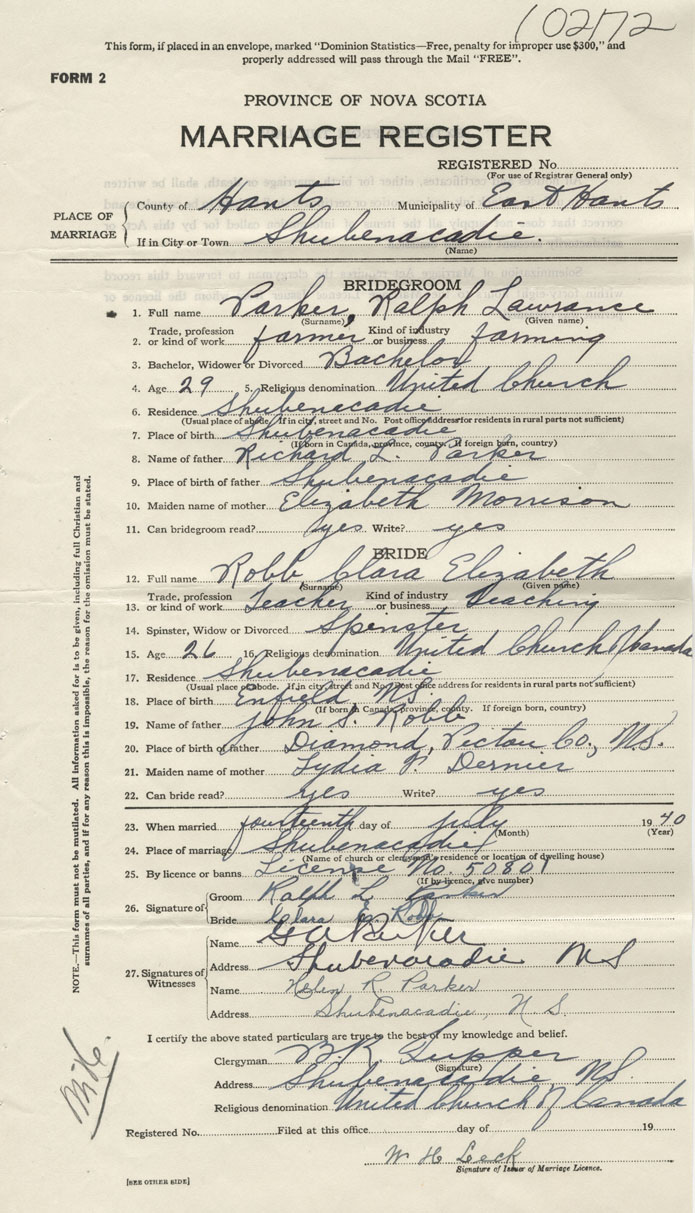 10272
This form, if placed in an envelope, marked "Dominion Statistics—Free, penalty for improper use $300," and
properly addressed will pass through the Mail "FREE".
FORM 2
PROVINCE OF NOVA SCOTIA
MARRIAGE REGISTER
REGISTERED No.
(For use of Registrar General only)
PLACE OF MARRIAGE
County of Hants Municipality of East Hants
If in City or Town Shubenacadie.
(Name)
BRIDEGROOM
1. Full name Parker, Ralph Lawrance
(Surname) (Given name)
2. Trade, profession or kind of work farmer Kind of industry or business farming
3. Bachelor, Widower or Divorced Bachelor
4. Age 29 5. Religious denomination United Church
6. Residence Shubenacadie
(Usual place of abode. If in city, street and No. Post office address for residents in rural parts not sufficient)
7. Place of birth Shubenacadie
(If born in Canada, province, county. If foreign born, country)
8. Name of father Richard L. Parker
9. Place of birth of father Shubenacadie
10. Maiden name of mother Elizabeth Morrison
11. Can bridegroom read? yes Write? yes
BRIDE
12. Full name Robb Clara Elizabeth
(Surname) (Given name)
13. Trade, profession or kind of work Teacher Kind of industry or business Teaching
14. Spinster, Widow or Divorced Spenster
15. Age 26 16. Religious denomination United Church of Canada
17. Residence Shubenacadie
(Usual place of abode. If in city, street and No. Post office address for residents in rural parts not sufficient)
18. Place of birth Enfield, N.S.
(If born in Canada, province, county. If foreign born, country)
19. Name of father John S. Robb
20. Place of birth of father Diamond, Pictou Co., N.S.
21. Maiden name of mother Lydia P. Dernier
22. Can bride read? yes Write? yes
23. When married fourteenth day of July 1940
(Month) (Year)
24. Place of marriage Shubenacadie
(Name of church or clergyman's residence or location of dwelling house)
25. By licence or banns License No. 50801
(If by licence, give number)
26. Signature of
Groom Ralph L Parker
Bride Clara E. Robb
27. Signatures of Witnesses
Name Parker
Address Shubenacadie N S
Name Helen R. Parker
Address Shubenacadie, N S.
I certify the above stated particulars are true to the best of my knowledge and belief.
Clergyman B.R. Tupper
(Signature)
Address Shubenacadie N.S.
Religious denomination United Church of Canada
Registered No. Filed at this office day of 19
W H Leck
Signature of Issuer of Marriage Licence.
[SEE OTHER SIDE]
NOTE.—This form must not be mutilated. All information asked for is to be given, including full Christian and
surnames of all parties, and if for any reason this is impossible, the reason for the omission must be stated.